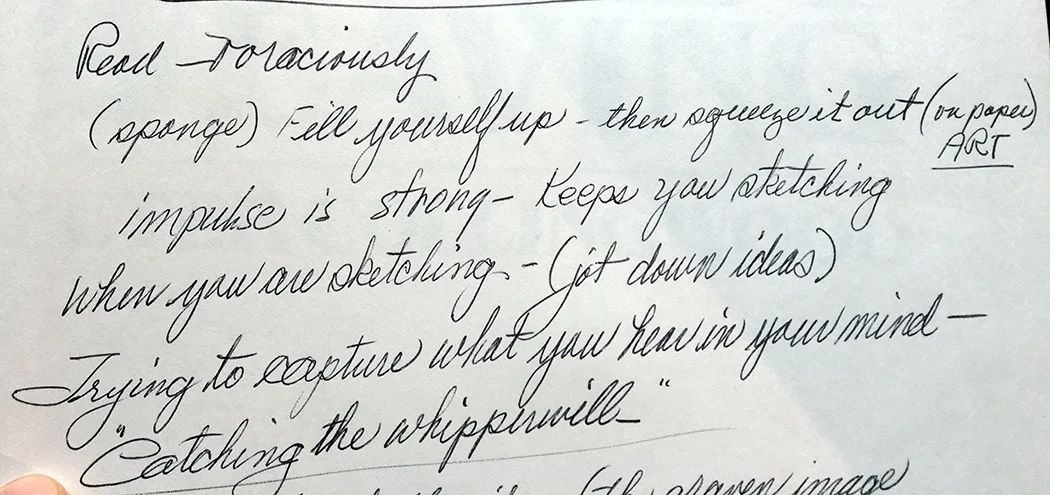 Read — Voraciously
(sponge) Fill yourself up - then squeeze it out (on paper)
ART
impulse is strong — Keeps you sketching
when you are sketching - (jot down ideas)
Trying to capture what you hear in your mind —
"Catching the whipperwill"
(the graven image